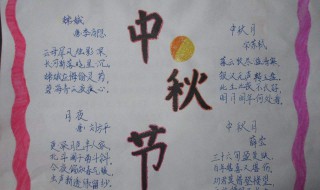 中
秋
节
嫦娥
唐 李商隐
云母屏风烛影深,
长河渐落晓星沉。
嫦娥应悔偷灵药,
碧海青天夜夜心。
月夜
唐 刘方平
更深月色半人家,
北斗阑干南斗斜。
今夜偏知春气暖,
虫声新透绿窗纱。
中秋月
宋 苏轼
暮云收尽溢清寒
银汉无声转玉盘
此生此夜不长好
明月明年何处看
中秋月
三十六宫